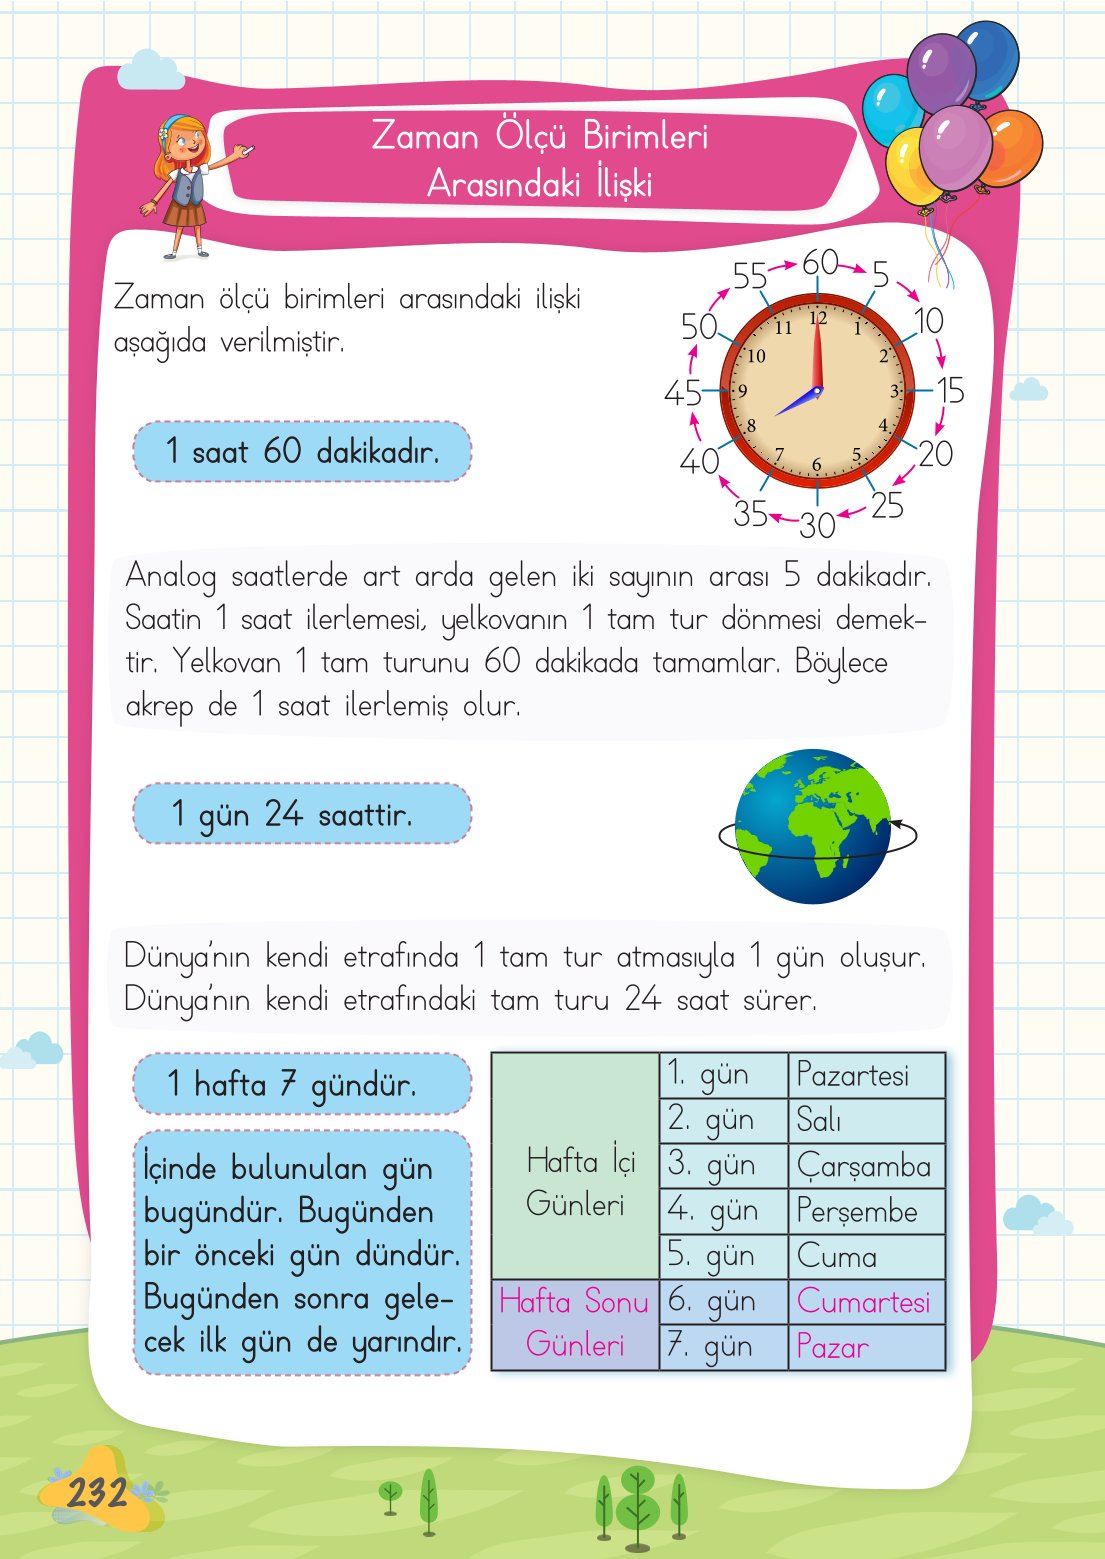 Zaman Ölçü Birimleri
Arasındaki İlişki
Zaman ölçü birimleri arasındaki ilişki
aşağıda verilmiştir.
60
5
10
15
20
25
30
35
40
45
50
55
12
1
2
3
4
5
6
7
8
9
10
11
1 saat 60 dakikadır.
Analog saatlerde art arda gelen iki sayının arası 5 dakikadır.
Saatin 1 saat ilerlemesi, yelkovanın 1 tam tur dönmesi demek-
tir. Yelkovan 1 tam turunu 60 dakikada tamamlar. Böylece
akrep de 1 saat ilerlemiş olur.
1 gün 24 saattir.
Dünya'nın kendi etrafında 1 tam tur atmasıyla 1 gün oluşur.
Dünya'nın kendi etrafındaki tam turu 24 saat sürer.
1 hafta 7 gündür.
İçinde bulunulan gün
bugündür. Bugünden
bir önceki gün dündür.
Bugünden sonra gele-
cek ilk gün de yarındır.
Hafta İçi
Günleri
1. gün Pazartesi
2. gün Salı
3. gün Çarşamba
4. gün Perşembe
5. gün Cuma
Hafta Sonu
Günleri
6. gün Cumartesi
7. gün Pazar
232